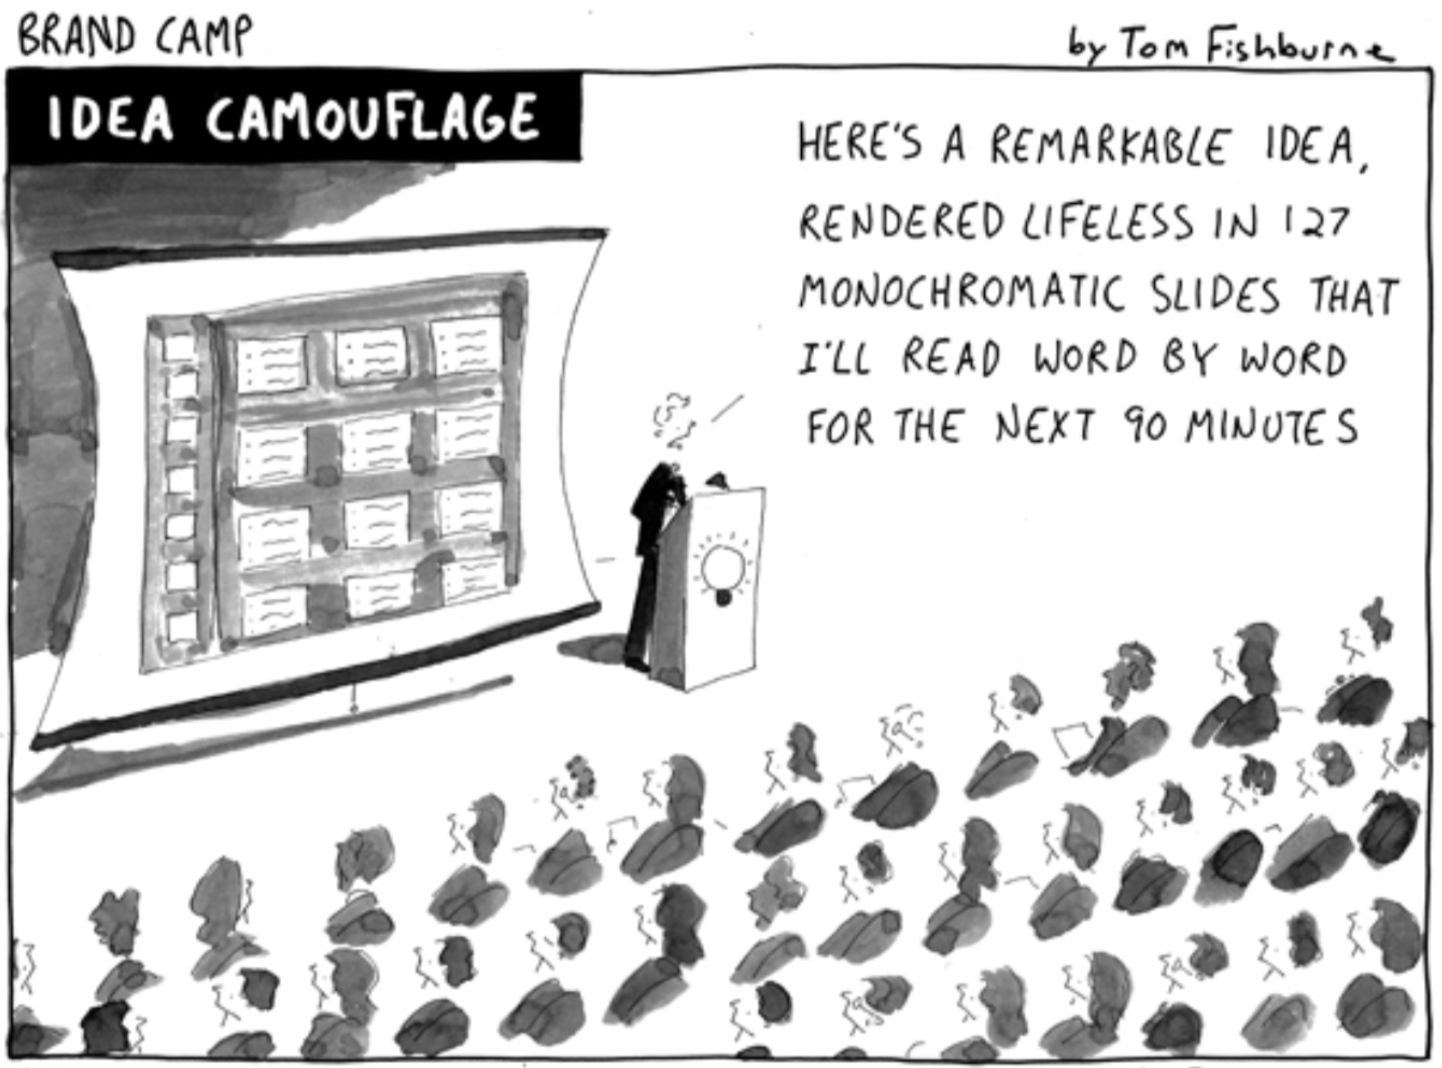 BRAND CAMP
by Tom Fishburne
IDEA CAMOUFLAGE
HERE'S A REMARKABLE IDEA,
RENDERED LIFELESS IN 127
MONOCHROMATIC SLIDES THAT
I'LL READ WORD BY WORD
FOR THE NEXT 90 MINUTES